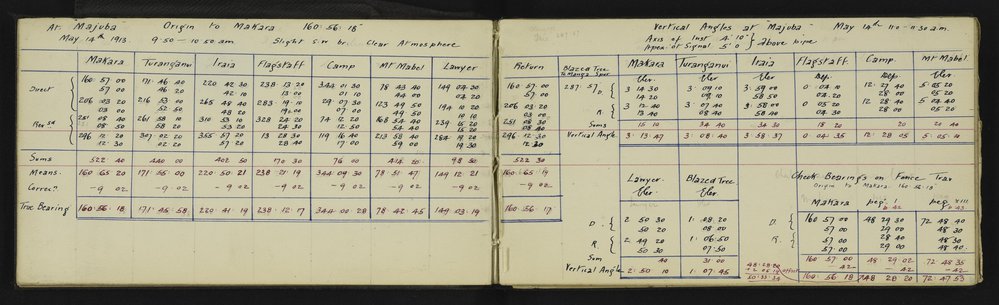 At "Majuba" Origin to Makara 160·56·18"
May 14th 1913. 9·50 — 10·50 am Slight S.W br. Clear Atmosphere
Makara Turanganui Iraia Flagstaff Camp Mt Mabel Lawyer Return
Direct
160 57 00 171 46 40 220 42 30 238·13·20 344 01 30 78 43 40 149 04 30 160 57 00
57 00 46 20 42 10 13 00 01 10 44 00 57 00
206 03 20 216 53 00 265 48 40 283·19·10 29·07 30 123 49 50 194 10 20 206 03 20
03 00 52 50 48 20 03 00
Revsd 251 08 40 261 58 10 310 53 40 328 24 20 74 12 20 168 54 40 251 08 30
08 50 58 20 53 20 24 30 12 50 54 40
296 12 20 307 02 20 355 57 20 13 28 30 119 16 40 213 58 40 296 12 30
12 30 02 20 57 20 17 00 59 00 12 30
Sums 522·40 440 00 402 50 170 30 76 00 98 30 522 30
Means. 160·65 20 171·55·00 220·50·21 238·21·19 344 09 30 78·51·47 149·12·21 160·65·19
Correcn — 9 02 — 9 02 — 9 02 — 9 02 — 9 02 — 9 02 — 9 02 — 9 02
True Bearing 160·56·18 171·45·58 220·41·19 238·12·17 344·00·28 78·42·45 149·03·19 160·56·17
Vertical Angles at "Majuba" May 14th 11·0 – 11·30 am.
Axis of inst 4'·10"
Apex of Signal 5'·0 } above pipe
Blazed Tree Makara Turanganui Iraia Flagstaff Camp Mt Mabel
Elev. Elev. Elev. Dep. Dep. Elev.
287·57 D. 3 14 30 3·09 10 3·59 00 0·04 10 12·27 40 5 05 20
14 20 09 10 58 50 04 20 05 20
R. 3 12 40 3·07 40 3·58 00 0 05 20 12 28 40 5 04 40
Sums 15 10 34 40 34 30 18 20 20 20 40
Vertical Angle 3·13·47 3·08·40 3·58·37 0 04 35 12·28 05 5·05·11
Lawyer Blazed Tree Check Bearings on Fence Trav
Elev. Elev. Origin to Makara 160·56·18
Makara peg. 1 peg. xiii
D. 2 50 30 1·08·20 D. 160 57 00 48 29 30 72 48 40
50 20 08 00 57 00 29 00 48 30
R. 2 49 20 1·06·50 R. 57 00 28 50 48 30
50 30 07 50 57 00 29 00 48 40
Sum 40 31·00 160·57·00 48·29·02 72 48 35
— 42 — 42 — 42
Vertical Angle 2·50 10 1·07·45 160·56 18 48 28 20 72·47·53